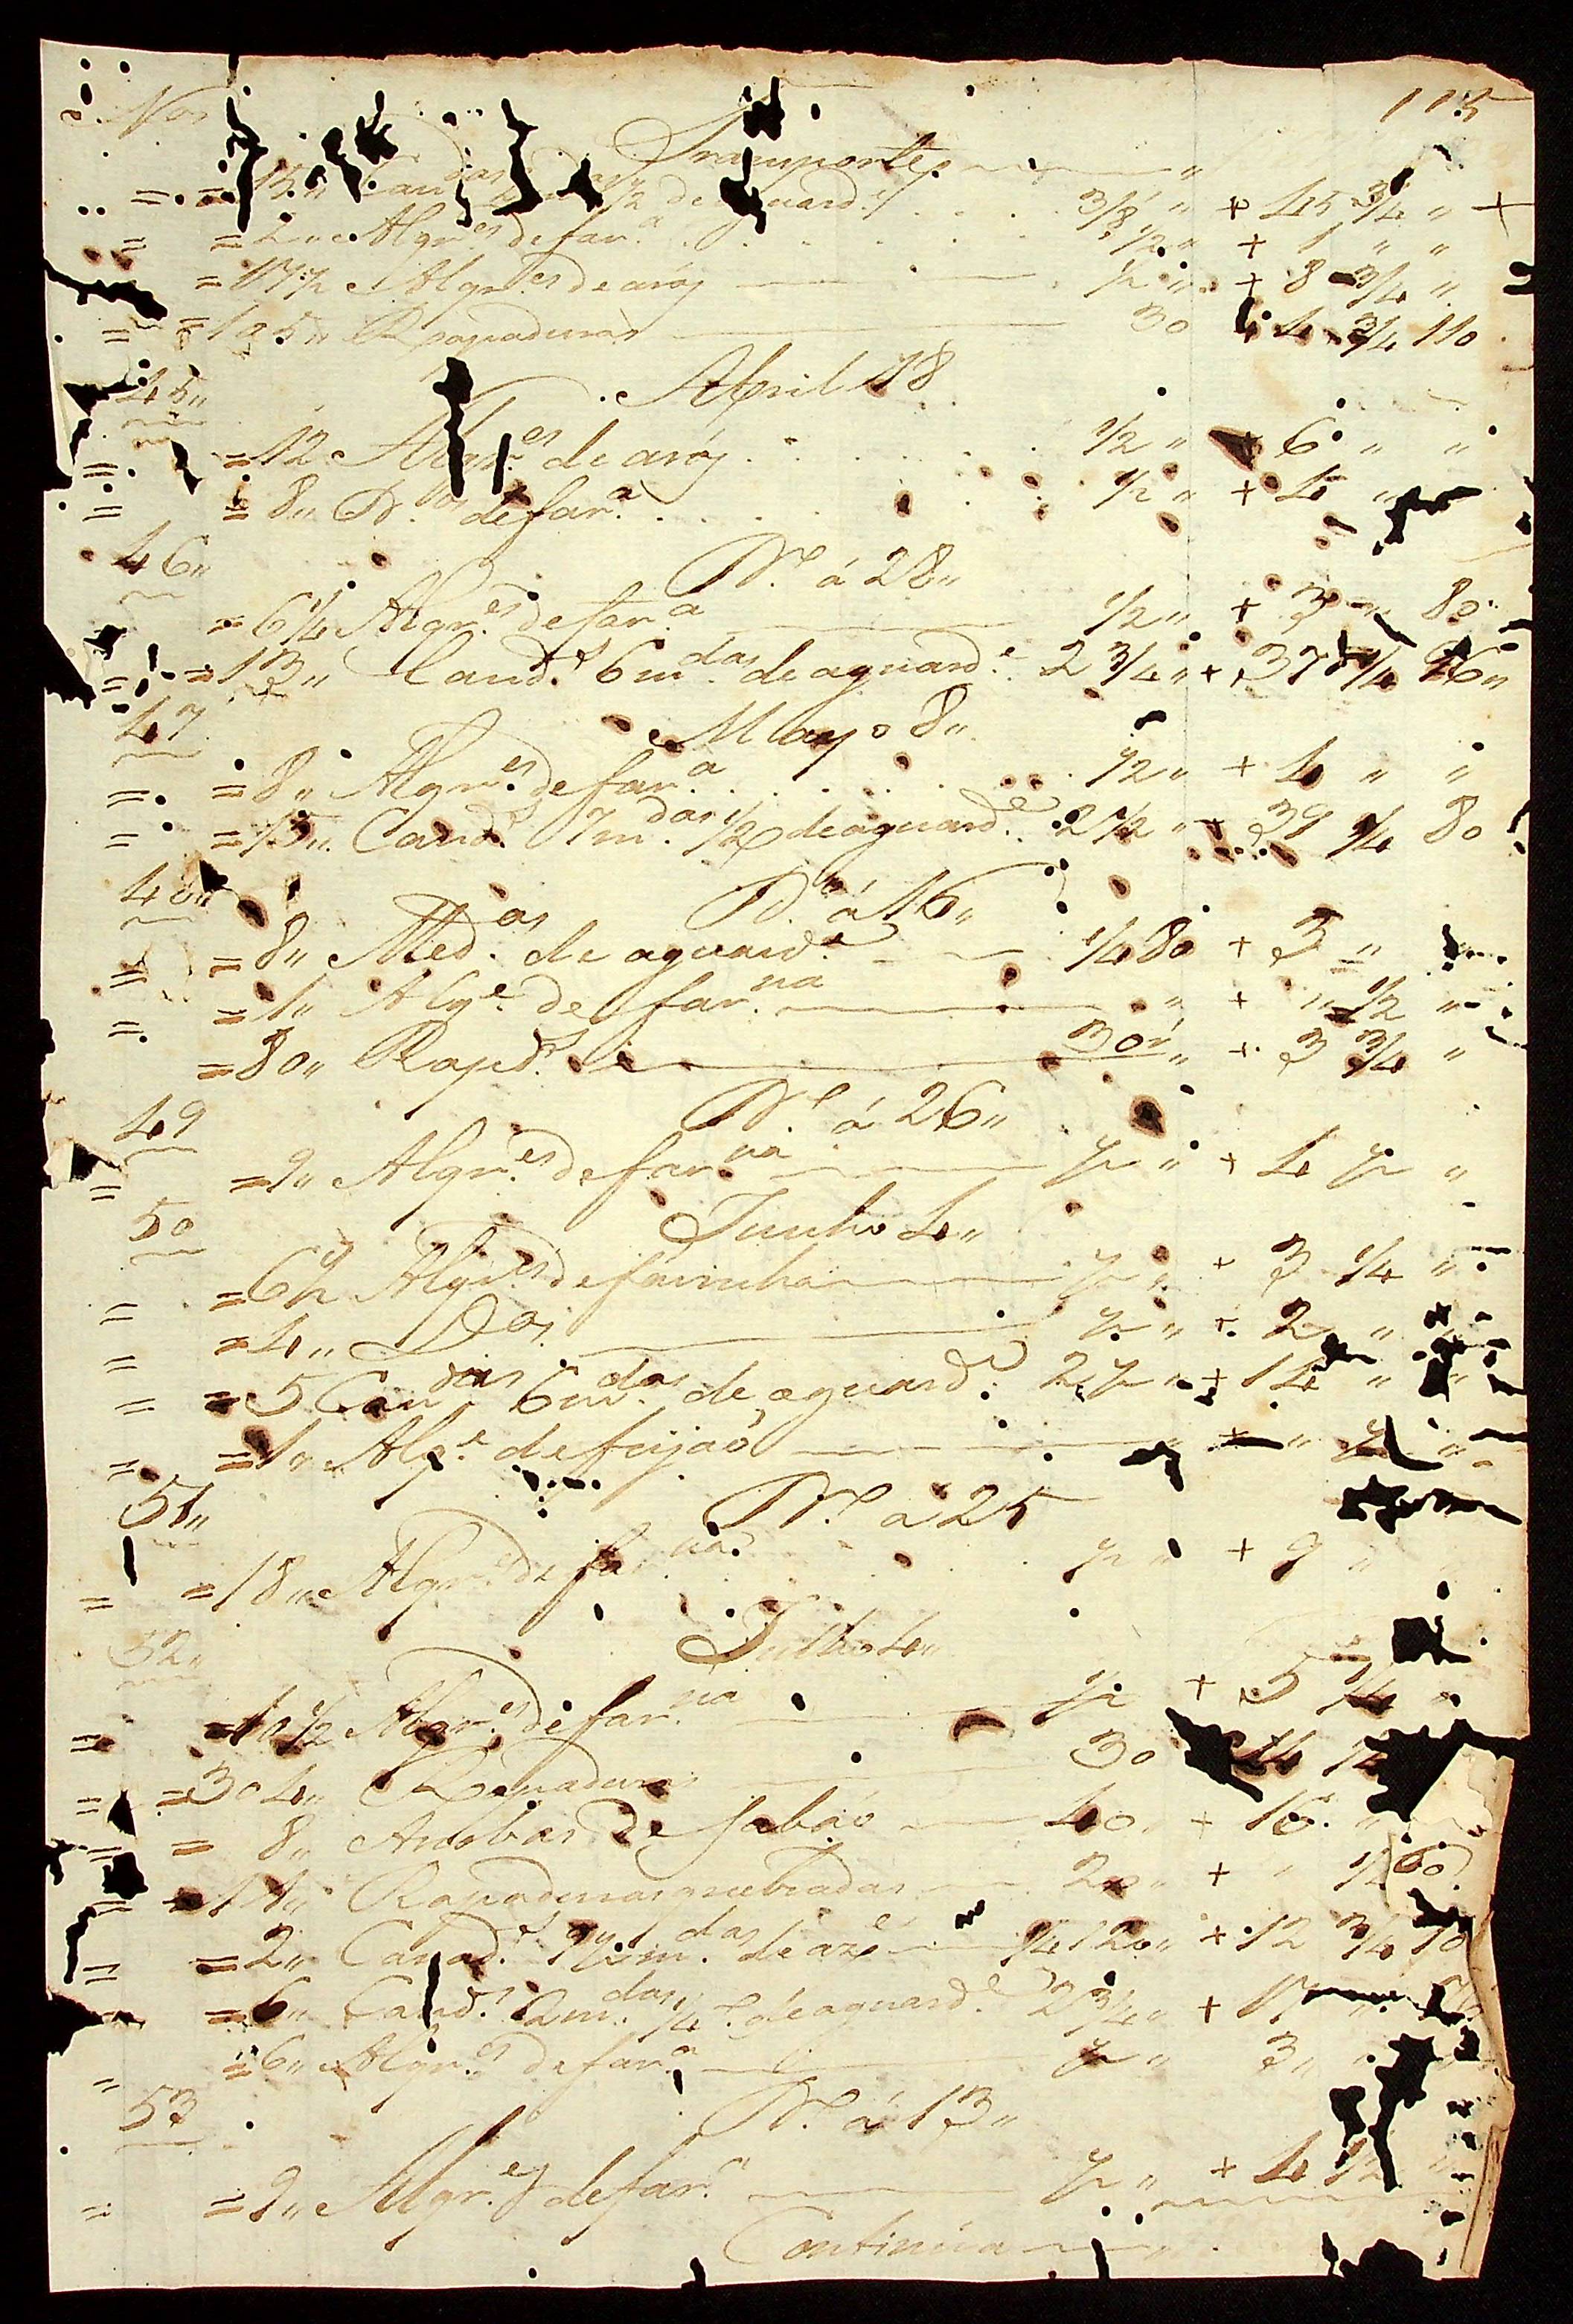 Nos 115
Transporte "
= = 15 " Can das 1/2 de aguard.e 3/8 " + 45 3/4 " +
= = 2 " Algr.es de far.a 1/2 " + 1 " "
= 17 1/2 Algr.es de aróz 1/2 " + 8 3/4 "
= = 195 " Rapaduras 30 4 3/4 110
45 " Abril 18
= = 12 Algr.es de aróz 1/2 " 6 " "
= = 8 " D.os de far.a 1/2 " + 4 "
46 " D.o á 28 "
= 6 1/4 Algr.es de far.a 1/2 " + 3 " 80
= = 13 " Cand.s 6 m.das de aguard.e 2 3/4 " + 37 1/4 "
47 Mayo 8 "
= = 8 " Algr.es de far.a 1/2 " + 4 " "
= = 15 " Cand.s 7 m.das 1/2 de aguard.e 2 1/2 " + 39 1/4 80
48 " D.o á 16 "
= = 8 " Med.as de aguard.e 1/4 80 + 3 "
= 1 " Alg.e de far.na " + " 1/2 "
= = 80 " Rapd.s 30 " + 3 3/4 "
49 D.o á 26 "
= = 9 " Algr.es de far.na 1/2 " + 4 1/2 "
50 Junho 4 "
= = 6 1/2 Algr.es de farinha 1/2 " + 3 1/4 "
= = 4 " D.os 1/2 " + 2 "
= = 5 Can das 6 m.das de aguard.e 2 1/2 " + 14 " "
= = 1 " Alg.e de feijaó " + " 1/2 "
51 " D.o á 25
= = 18 " Algr.es de far.na 1/2 " + 9 "
52 " Julho 4 "
= = 10 1/2 Algr.es de far.na 1/2 + 5 1/4
= = 304 " Rapaduras 30 14
= = 8 " Arrobas de sabaó 40 + 16 "
= 11 " Rapaduras quebradas 20 " + " 1/2 60
= = 2 " Canad.s m.das de aze 1/4 120 " + 12 3/4 10
= 6 " Cand.s 2 m.das 1/4 de aguard.e 2 3/4 " + 17
" = 6 " Algr.es de far.a 1/2 " 3 "
53 D.o á 13 "
= = 9 " Algr.es de far.a 1/2 " + 4 1/2
Continúa "